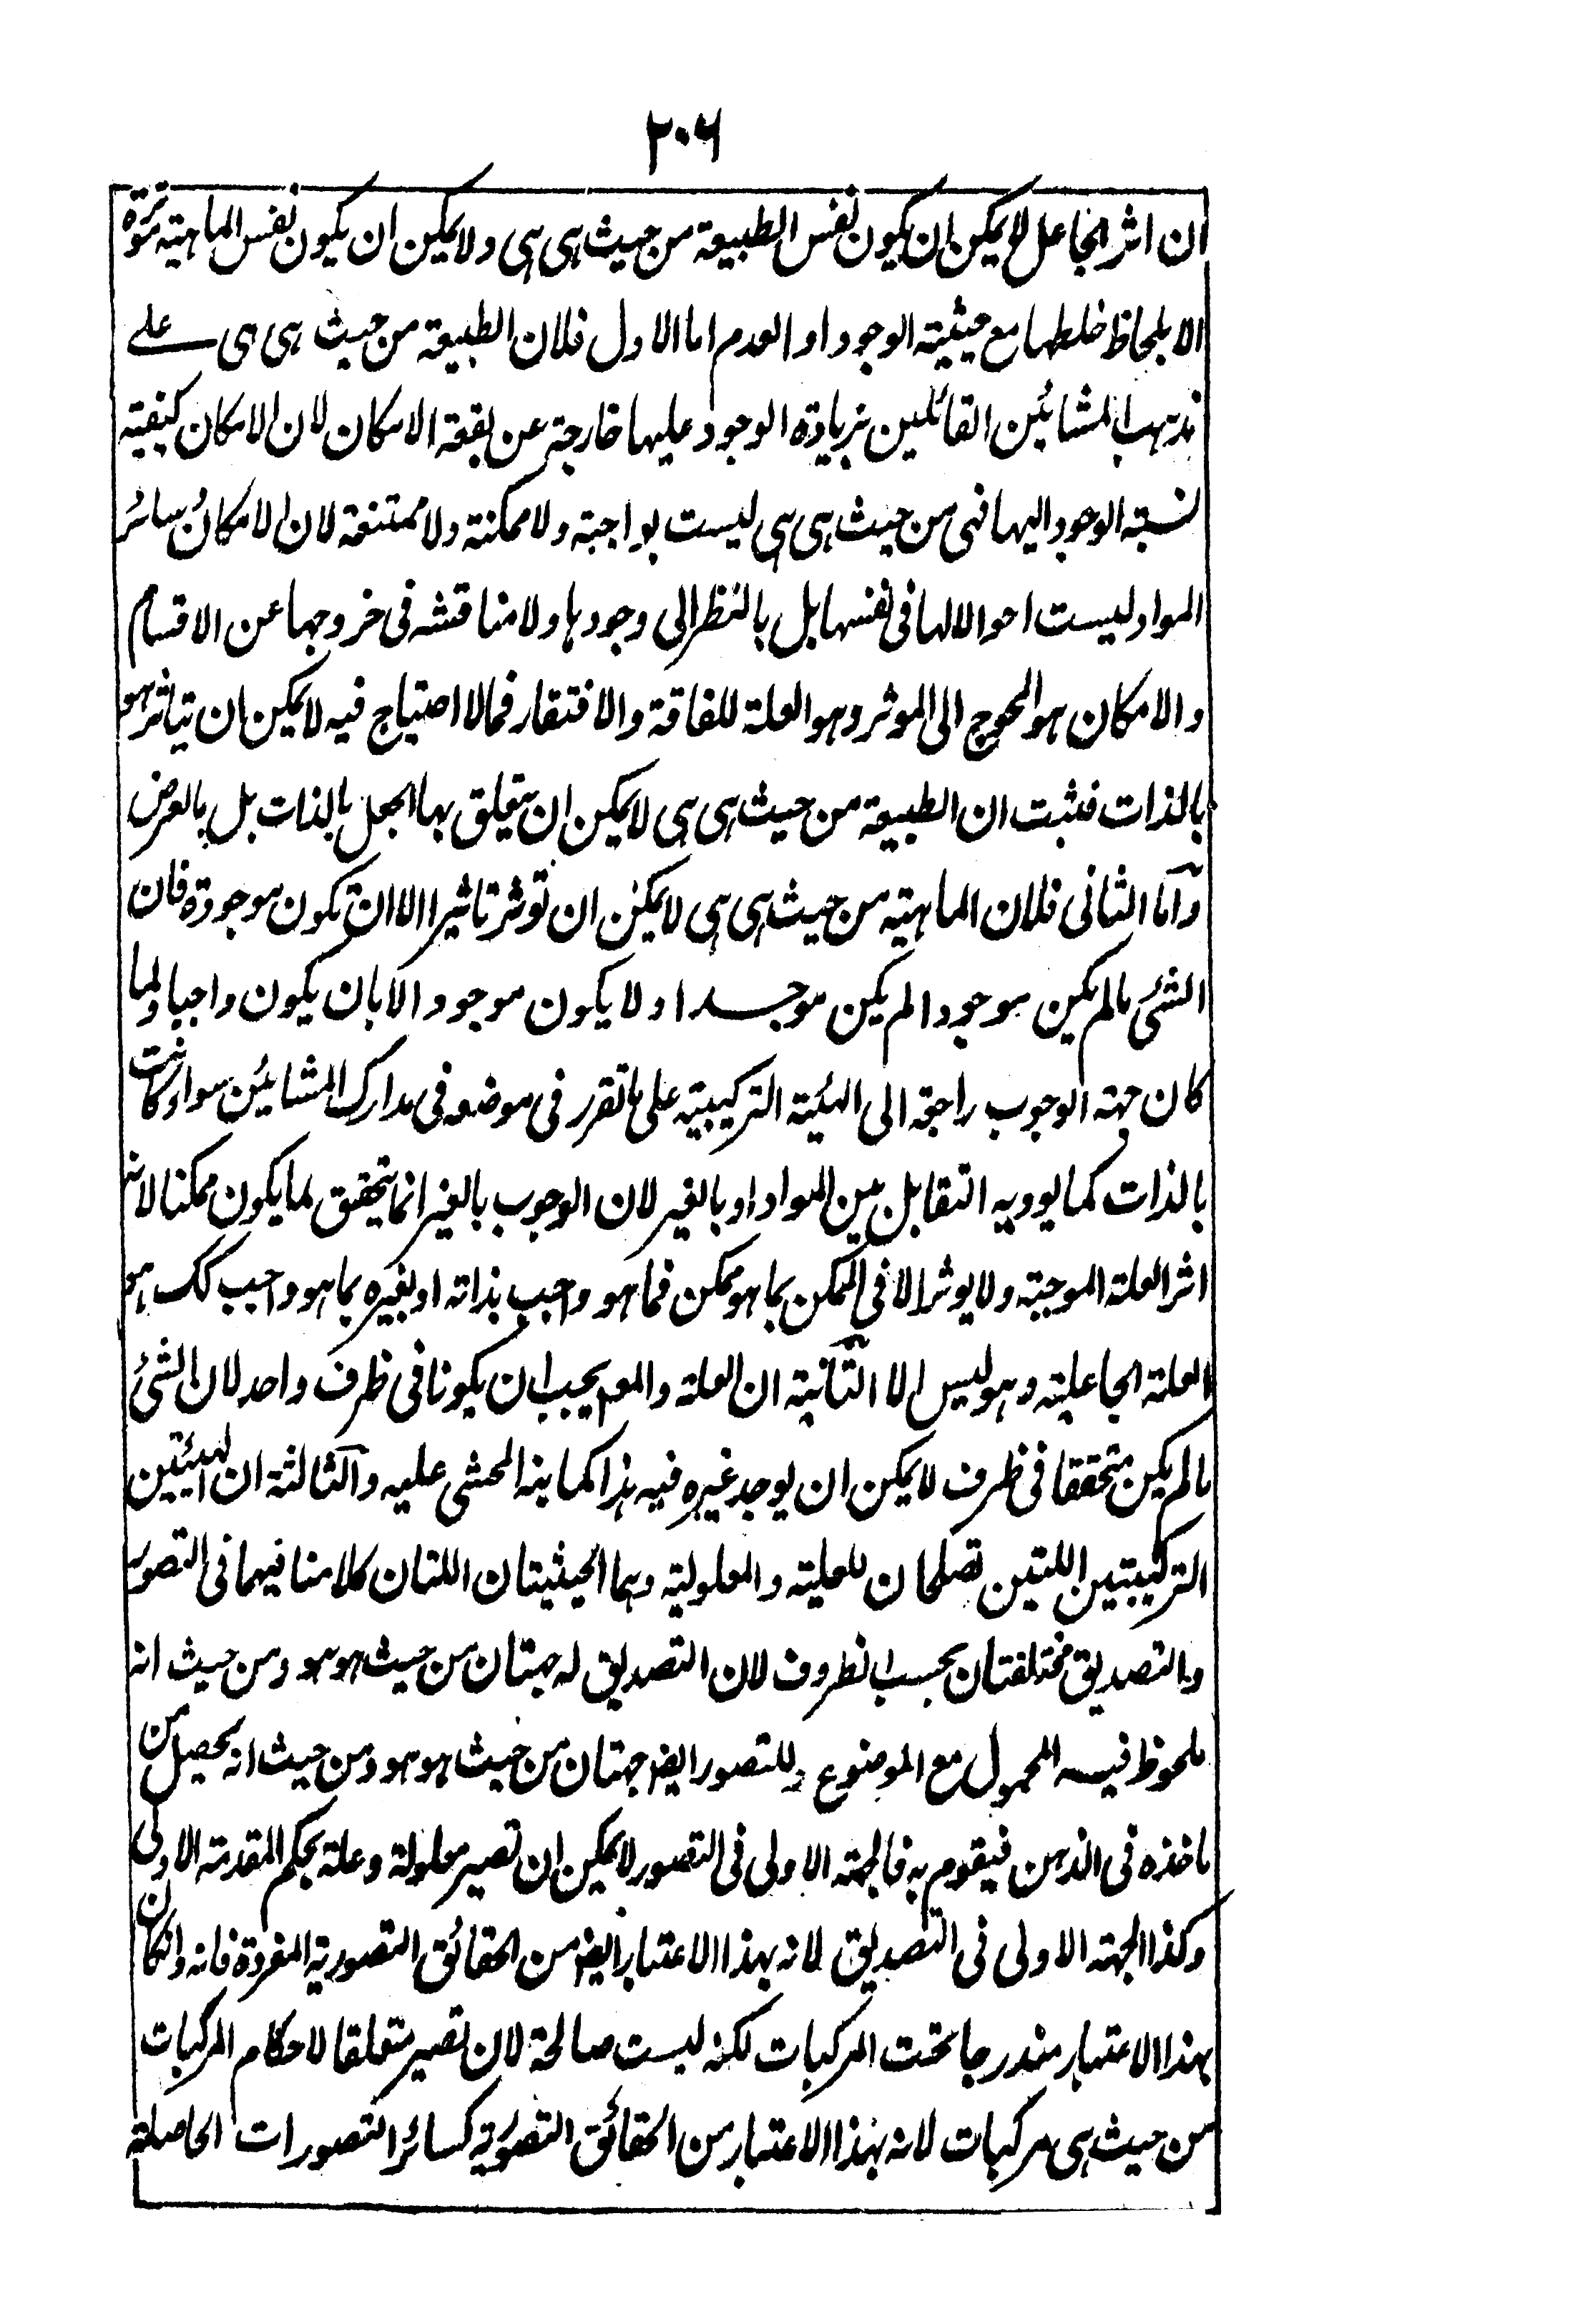 ٢٠٦
ان اثر الجاعل لا يمكن ان يكون نفس الطبيعة من حيث هى هى ولا يمكن ان يكون نفس الماهية مؤثرة
الا بلحاظ خلطها مع حيثية الوجود او العدم اما الاول فلان الطبيعة من حيث هى هى على
مذهب المشائين القائلين بزيادة الوجود عليها خارجة عن بقعة الامكان لان الامكان كيفية
نسبة الوجود اليها فهى من حيث هى هى ليست بواجبة ولا ممكنة ولا ممتنعة لان الامكان وسائر
المواد ليست احوالا لها فى نفسها بل بالنظر الى وجودها ولا مناقشة فى خروجها عن الاقسام
والامكان هو المحوج الى الموثر وهو العلة للفاقة والافتقار فما لا احتياج فيه لا يمكن ان يتاثر هو
بالذات فثبت ان الطبيعة من حيث هى هى لا يمكن ان يتعلق بها الجعل بالذات بل بالعرض
وآما الثانى فلان الماهية من حيث هى هى لا يمكن ان توثر تاثيرا الا ان تكون موجودة فان
الشئ مالم يكن موجودا لم يكن موجدا ولا يكون موجودا الا بان يكون واجبا ولما
كان جهة الوجوب راجعة الى الهيئة التركيبية على ما تقرر فى موضعه فى مدارك المشائين سواء كانت
بالذات كما يوديه التقابل بين المواد او بالغير لان الوجوب بالغير انما يتحقق لما يكون ممكنا لانه
اثر العلة الموجبة ولا يوثر الا فى الممكن بما هو ممكن فما هو واجب بذاته او بغيره بما هو واجب كك هو
العلة الجاعلية وهو ليس الا الثانية ان العلة والمعم يجب ان يكونا فى ظرف واحد لان الشئ
مالم يكن متحققا فى ظرف لا يمكن ان يوجد غيره فيه هذا كما بنه المحشى عليه والثالثة ان الهيئتين
التركيبتين اللتين تصلحان للعلية والمعلولية وهما الحيثيتان اللتان كلامنا فيهما فى التصور
والتصديق مختلفتان بحسب الظروف لان التصديق له جهتان من حيث هو هو ومن حيث انه
ملحوظ فيه المحمول مع الموضوع وللتصور ايضا جهتان من حيث هو هو ومن حيث انه يحصل من
ماخذه فى الذهن فيقوم به فالجهة الاولى فى التصور لا يمكن ان تصير معلولة وعلة بحكم المقدمة الاولى
وكذا الجهة الاولى فى التصديق لانه بهذا الاعتبار ايضا من الحقائق التصورية المفردة فانه وانكان
بهذا الاعتبار مندرجا تحت المركبات لكنه ليست صالحة لان تصير متعلقا لاحكام المركبات
من حيث هى مركبات لانه بهذا الاعتبار من الحقائق التصورية كسائر التصورات الحاصلة